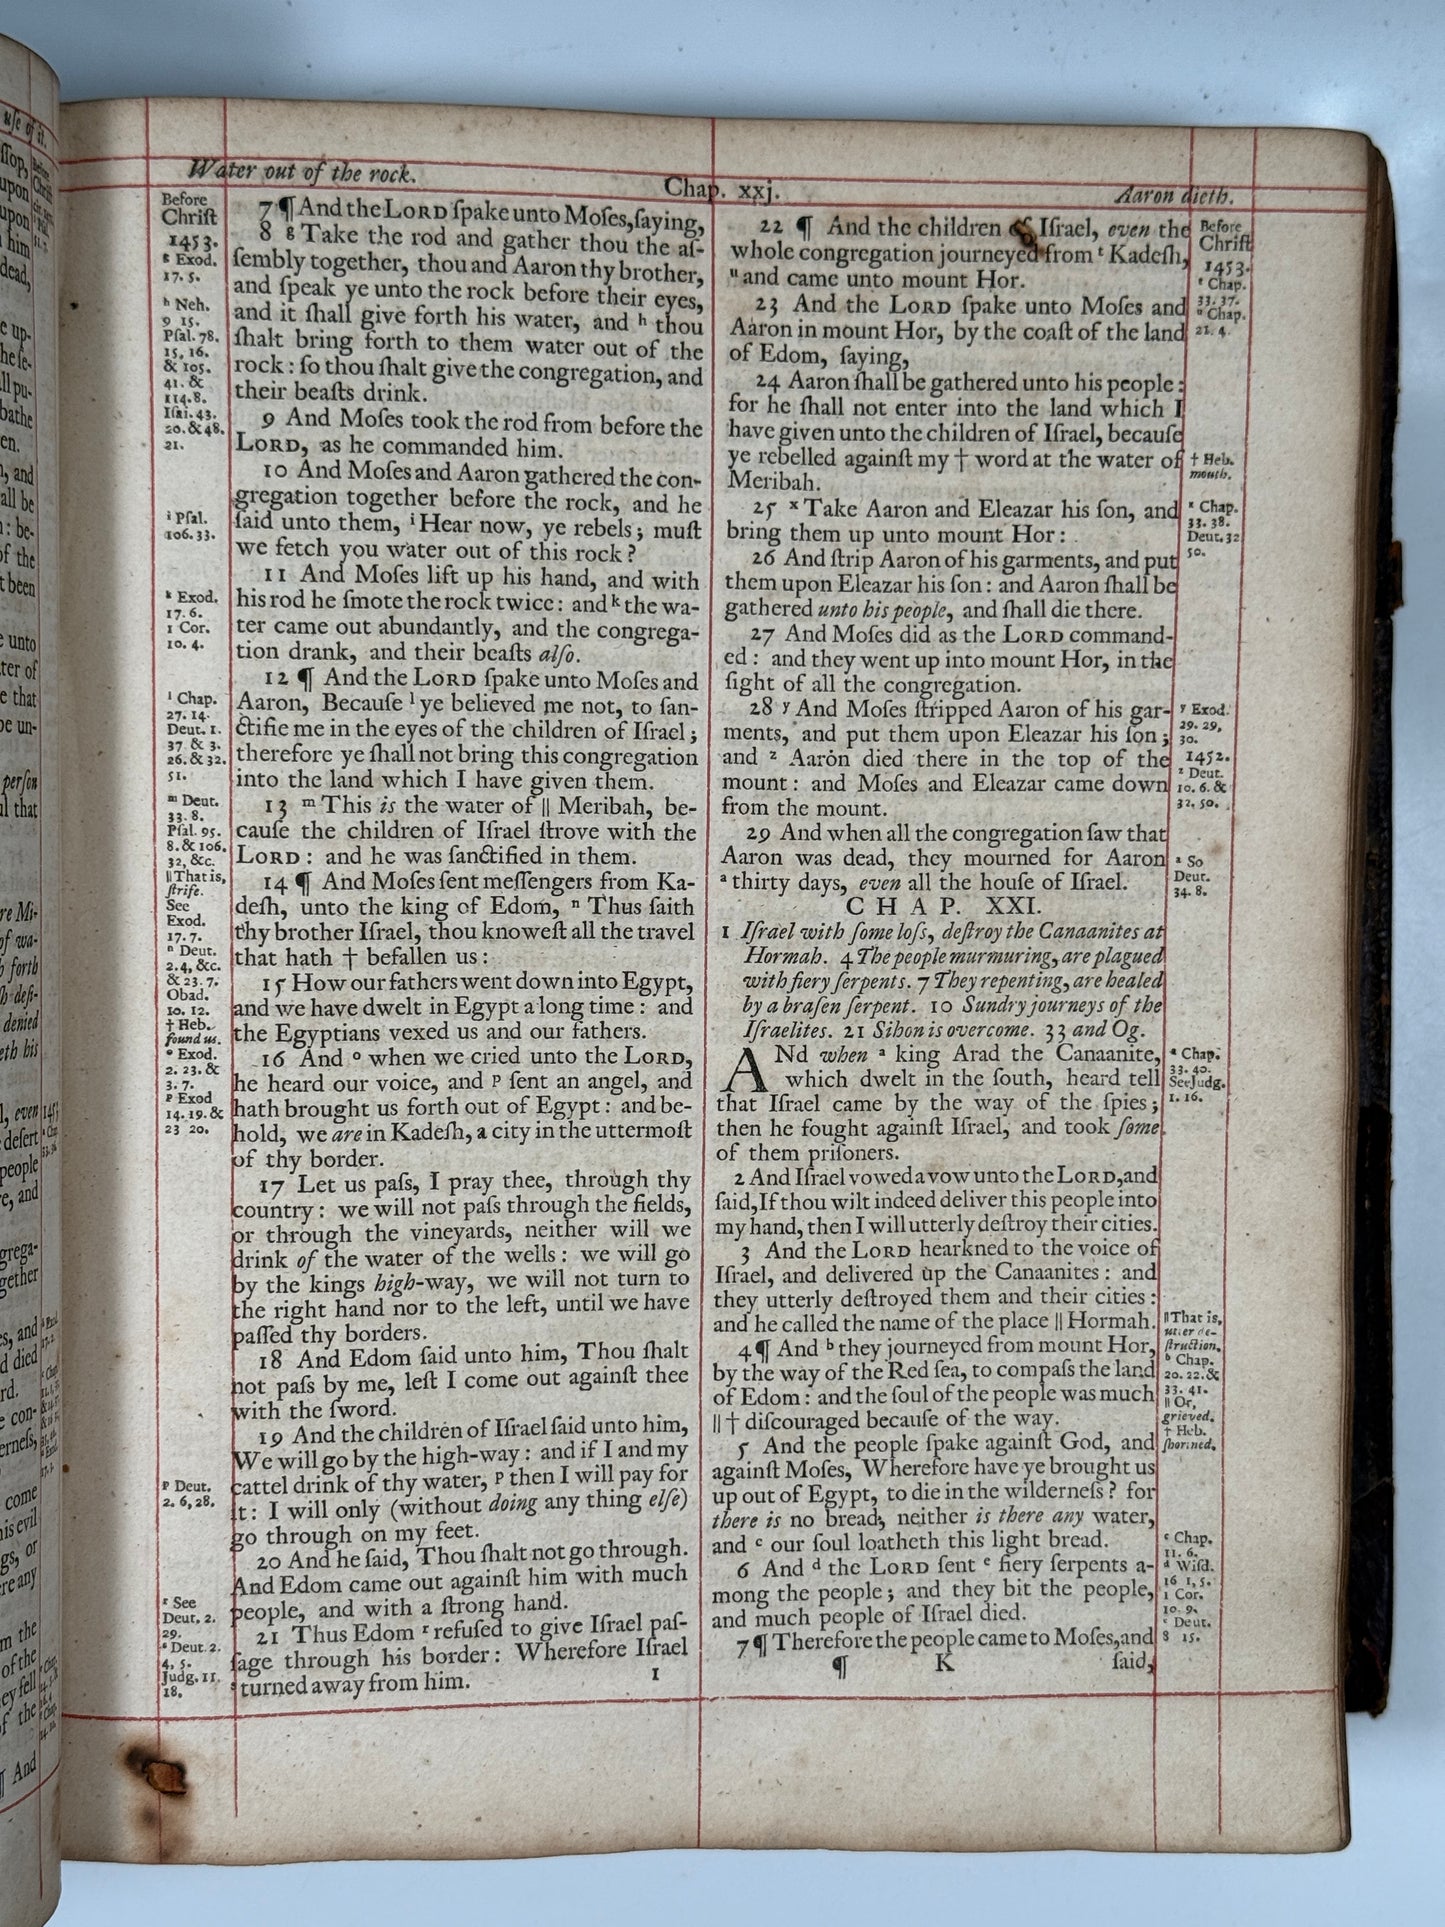 Water out of the rock.
Chap. xxj.
Aaron dieth.
Before
Chriſt
1453.
g Exod.
17. 5.
h Neh.
9 15.
Pſal. 78.
15, 16.
& 105.
41. &
114. 8.
Iſai. 43.
20. & 48.
21.
i Pſal.
106. 33.
k Exod.
17. 6.
1 Cor.
10. 4.
l Chap.
27. 14.
Deut. 1.
37 & 3.
26. & 32.
51.
m Deut.
33. 8.
Pſal. 95.
8. & 106.
32, &c.
|| That is,
ſtrife.
See
Exod.
17. 7.
n Deut.
2. 4, &c.
& 23. 7.
Obad.
10. 12.
† Heb.
found us.
o Exod.
2. 23. &
3. 7.
p Exod
14. 19. &
23 20.
p Deut.
2. 6, 28.
r See
Deut. 2.
29.
s Deut. 2.
4, 5.
Judg. 11.
18.
7 ¶ And the LORD ſpake unto Moſes, ſaying,
8 g Take the rod and gather thou the aſ-
ſembly together, thou and Aaron thy brother,
and ſpeak ye unto the rock before their eyes,
and it ſhall give forth his water, and h thou
ſhalt bring forth to them water out of the
rock : ſo thou ſhalt give the congregation, and
their beaſts drink.
9 And Moſes took the rod from before the
LORD, as he commanded him.
10 And Moſes and Aaron gathered the con-
gregation together before the rock, and he
ſaid unto them, i Hear now, ye rebels ; muſt
we fetch you water out of this rock ?
11 And Moſes lift up his hand, and with
his rod he ſmote the rock twice : and k the wa-
ter came out abundantly, and the congrega-
tion drank, and their beaſts alſo.
12 ¶ And the LORD ſpake unto Moſes and
Aaron, Becauſe l ye believed me not, to ſan-
ctifie me in the eyes of the children of Iſrael ;
therefore ye ſhall not bring this congregation
into the land which I have given them.
13 m This is the water of || Meribah, be-
cauſe the children of Iſrael ſtrove with the
LORD : and he was ſanctified in them.
14 ¶ And Moſes ſent meſſengers from Ka-
deſh, unto the king of Edom, n Thus ſaith
thy brother Iſrael, thou knoweſt all the travel
that hath † befallen us :
15 How our fathers went down into Egypt,
and we have dwelt in Egypt a long time : and
the Egyptians vexed us and our fathers.
16 And o when we cried unto the LORD,
he heard our voice, and p ſent an angel, and
hath brought us forth out of Egypt : and be-
hold, we are in Kadeſh, a city in the uttermoſt
of thy border.
17 Let us paſs, I pray thee, through thy
country : we will not paſs through the fields,
or through the vineyards, neither will we
drink of the water of the wells : we will go
by the kings high-way, we will not turn to
the right hand nor to the left, until we have
paſſed thy borders.
18 And Edom ſaid unto him, Thou ſhalt
not paſs by me, leſt I come out againſt thee
with the ſword.
19 And the children of Iſrael ſaid unto him,
We will go by the high-way : and if I and my
cattel drink of thy water, p then I will pay for
it : I will only (without doing any thing elſe)
go through on my feet.
20 And he ſaid, Thou ſhalt not go through.
And Edom came out againſt him with much
people, and with a ſtrong hand.
21 Thus Edom r refuſed to give Iſrael paſ-
ſage through his border : Wherefore Iſrael
s turned away from him.
1
22 ¶ And the children of Iſrael, even the
whole congregation journeyed from t Kadeſh,
u and came unto mount Hor.
23 And the LORD ſpake unto Moſes and
Aaron in mount Hor, by the coaſt of the land
of Edom, ſaying,
24 Aaron ſhall be gathered unto his people :
for he ſhall not enter into the land which I
have given unto the children of Iſrael, becauſe
ye rebelled againſt my † word at the water of
Meribah.
25 x Take Aaron and Eleazar his ſon, and
bring them up unto mount Hor :
26 And ſtrip Aaron of his garments, and put
them upon Eleazar his ſon : and Aaron ſhall be
gathered unto his people, and ſhall die there.
27 And Moſes did as the LORD command-
ed : and they went up into mount Hor, in the
ſight of all the congregation.
28 y And Moſes ſtripped Aaron of his gar-
ments, and put them upon Eleazar his ſon ;
and z Aaron died there in the top of the
mount : and Moſes and Eleazar came down
from the mount.
29 And when all the congregation ſaw that
Aaron was dead, they mourned for Aaron
a thirty days, even all the houſe of Iſrael.
CHAP. XXI.
1 Iſrael with ſome loſs, deſtroy the Canaanites at
Hormah. 4 The people murmuring, are plagued
with fiery ſerpents. 7 They repenting, are healed
by a braſen ſerpent. 10 Sundry journeys of the
Iſraelites. 21 Sihon is overcome. 33 and Og.
ANd when a king Arad the Canaanite,
which dwelt in the ſouth, heard tell
that Iſrael came by the way of the ſpies ;
then he fought againſt Iſrael, and took ſome
of them priſoners.
2 And Iſrael vowed a vow unto the LORD, and
ſaid, If thou wilt indeed deliver this people into
my hand, then I will utterly deſtroy their cities.
3 And the LORD hearkned to the voice of
Iſrael, and delivered up the Canaanites : and
they utterly deſtroyed them and their cities :
and he called the name of the place || Hormah.
4 ¶ And b they journeyed from mount Hor,
by the way of the Red ſea, to compaſs the land
of Edom : and the ſoul of the people was much
|| † diſcouraged becauſe of the way.
5 And the people ſpake againſt God, and
againſt Moſes, Wherefore have ye brought us
up out of Egypt, to die in the wilderneſs ? for
there is no bread, neither is there any water,
and c our ſoul loatheth this light bread.
6 And d the LORD ſent e fiery ſerpents a-
mong the people ; and they bit the people,
and much people of Iſrael died.
7 ¶ Therefore the people came to Moſes, and
¶ K ſaid,
Before
Chriſt
1453.
t Chap.
33. 37.
u Chap.
21. 4.
† Heb.
mouth.
x Chap.
33. 38.
Deut. 32
50.
y Exod.
29. 29,
30.
1452.
z Deut.
10. 6. &
32. 50.
a So
Deut.
34. 8.
a Chap.
33. 40.
See Judg.
1. 16.
|| That is,
utter de-
ſtruction.
b Chap.
20. 22. &
33. 41.
|| Or,
grieved.
† Heb.
ſhortned.
c Chap.
11. 6.
d Wiſd.
16 1, 5.
1 Cor.
10. 9.
e Deut.
8 15.